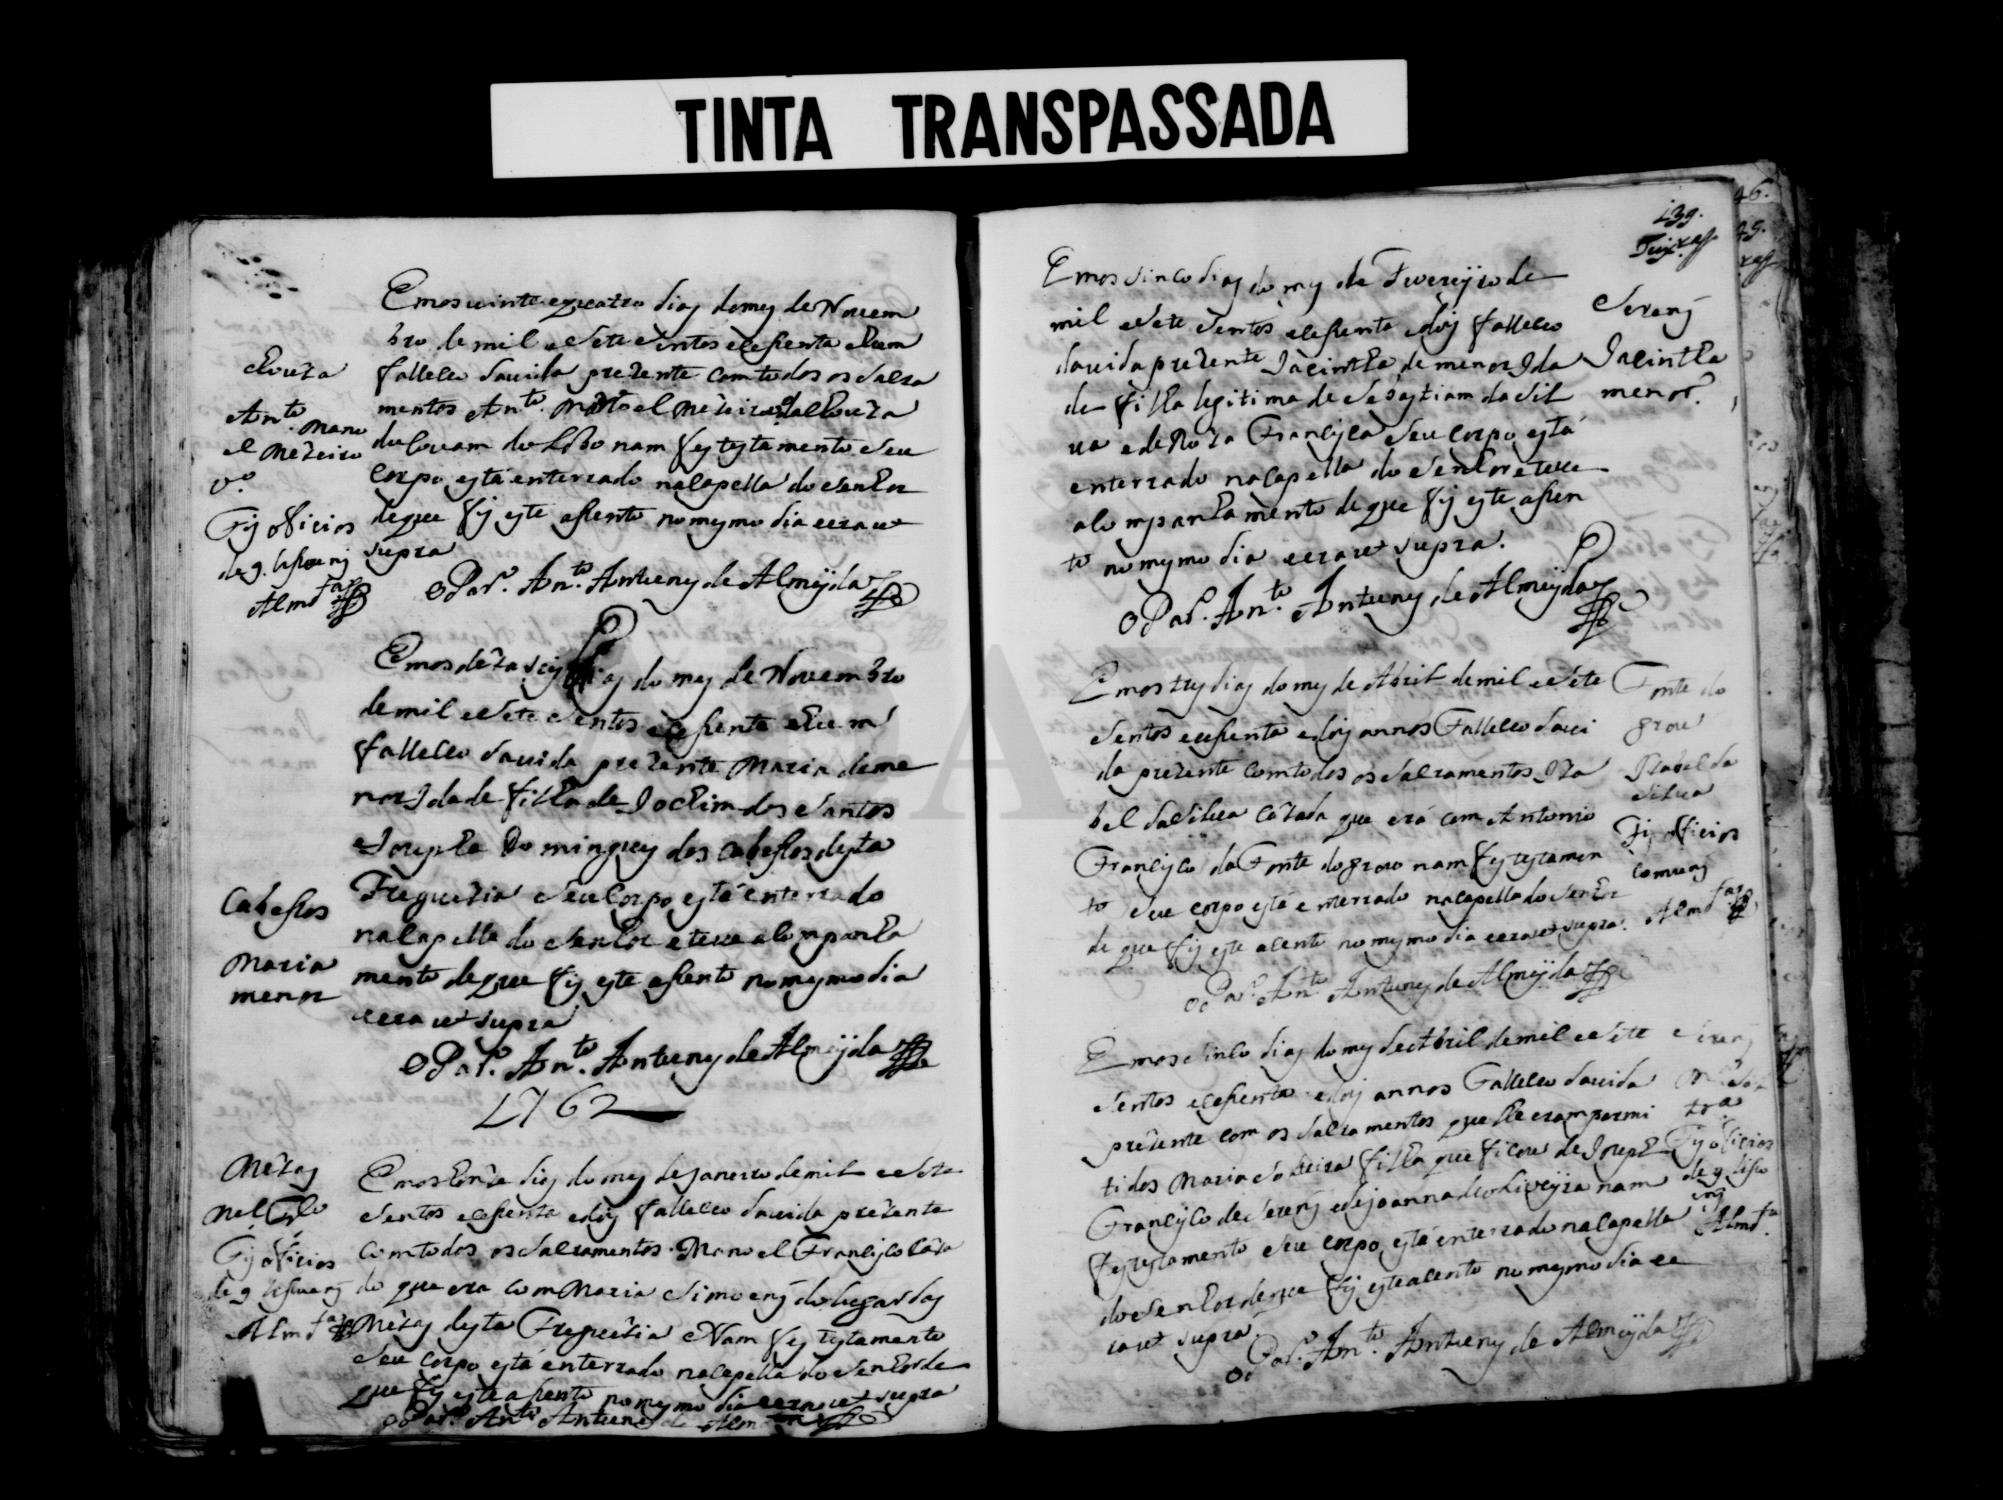 TINTA TRANSPASSADA
Emos uinte equatro dias domes de Novem
bro de mil e Sete Sentos esesenta ehum
falleceo da uida prezente comtodos os Sacra
mentos Ant.º Manoel
do Covam do Lobo nam fes testamento Seu
Corpo está enterrado nacapella do Senhor
deque fis este asento nomesmo dia eera ut
supra
O Par.º An.to Antunes de Almeyda
An.to Mano
el
v.º
Fis oficios
de 9. lisoens
Alm.da
Emos deza seis dias do mes de Novembro
de mil e Sete Sentos esesenta ehum
falleceo dauida prezente Maria deme
nor Idade filha de Joachim dos Santos
e Josepha Domingues dos Cabesos desta
Freguezia Seu Corpo está enterrado
nacapella do Senhor e teue acompanha
mento deque fis este asento nomesmo dia
eera ut supra
O Par.º An.to Antunes de Almeyda
Cabesos
Maria
menor
1762
Emos honze dias do mes de Janeiro demil e Sete
Sentos esesenta edois falleceo dauida prezente
Comtodos os Sacramentos Manoel Francisco Caza
do que era com Maria Simoens do lugar das
Mezas desta Freguezia e Nam fes testamento
Seu Corpo está enterrado nacapella do Senhor de
que fis este asento nomesmo dia eera ut supra
O Par.º An.to Antunes de Alm.da
Mezas
M.el Fr.co
Fis oficios
de 9 lisoens
Alm.da
139.
Emos sinco dias do mes de Fevereyro de
mil e Sete Sentos esesenta edois falleceo
dauida prezente Jacintha de menor Ida
de filha legitima de Sebastiam da Sil
ua e de Roza Francisca Seu Corpo está
enterrado nacapella do Senhor e teue
acompanhamento deque fis este asen
to nomesmo dia eera ut supra.
O Par.º An.to Antunes de Almeyda
Serens
Jacintha
menor.
Emos tres dias do mes de Abril demil e Sete
Sentos esesenta edois annos Falleceo daui
da prezente comtodos os Sacramentos Iza
bel da Silua Cazada que erá com Antonio
Francisco da Fonte do groue nam fes testamen
to Seu corpo está enterrado nacapella do Senhor
de que fis este acento nomesmo dia eera ut supra.
O Par.º An.to Antunes de Almeyda
Fonte do
groue
Izabel da
Silua
Fis oficios
Comuns
Alm.da
Emos Sinco dias do mes de Abril demil e Sete
Sentos esesenta edois annos Falleceo dauida
prezente com os Sacramentos que lhe eram permi
tidos Maria Solteira filha que ficou de Joseph
Francisco de Serens e de joanna de oLiveyra nam
fes testamento Seu corpo está enterrado nacapella
do Senhor deque fis este acento nomesmo dia ee
ra ut supra.
O Par.º An.to Antunes de Almeyda
Serens
Fis oficios
de 9 liso
ens
Alm.da